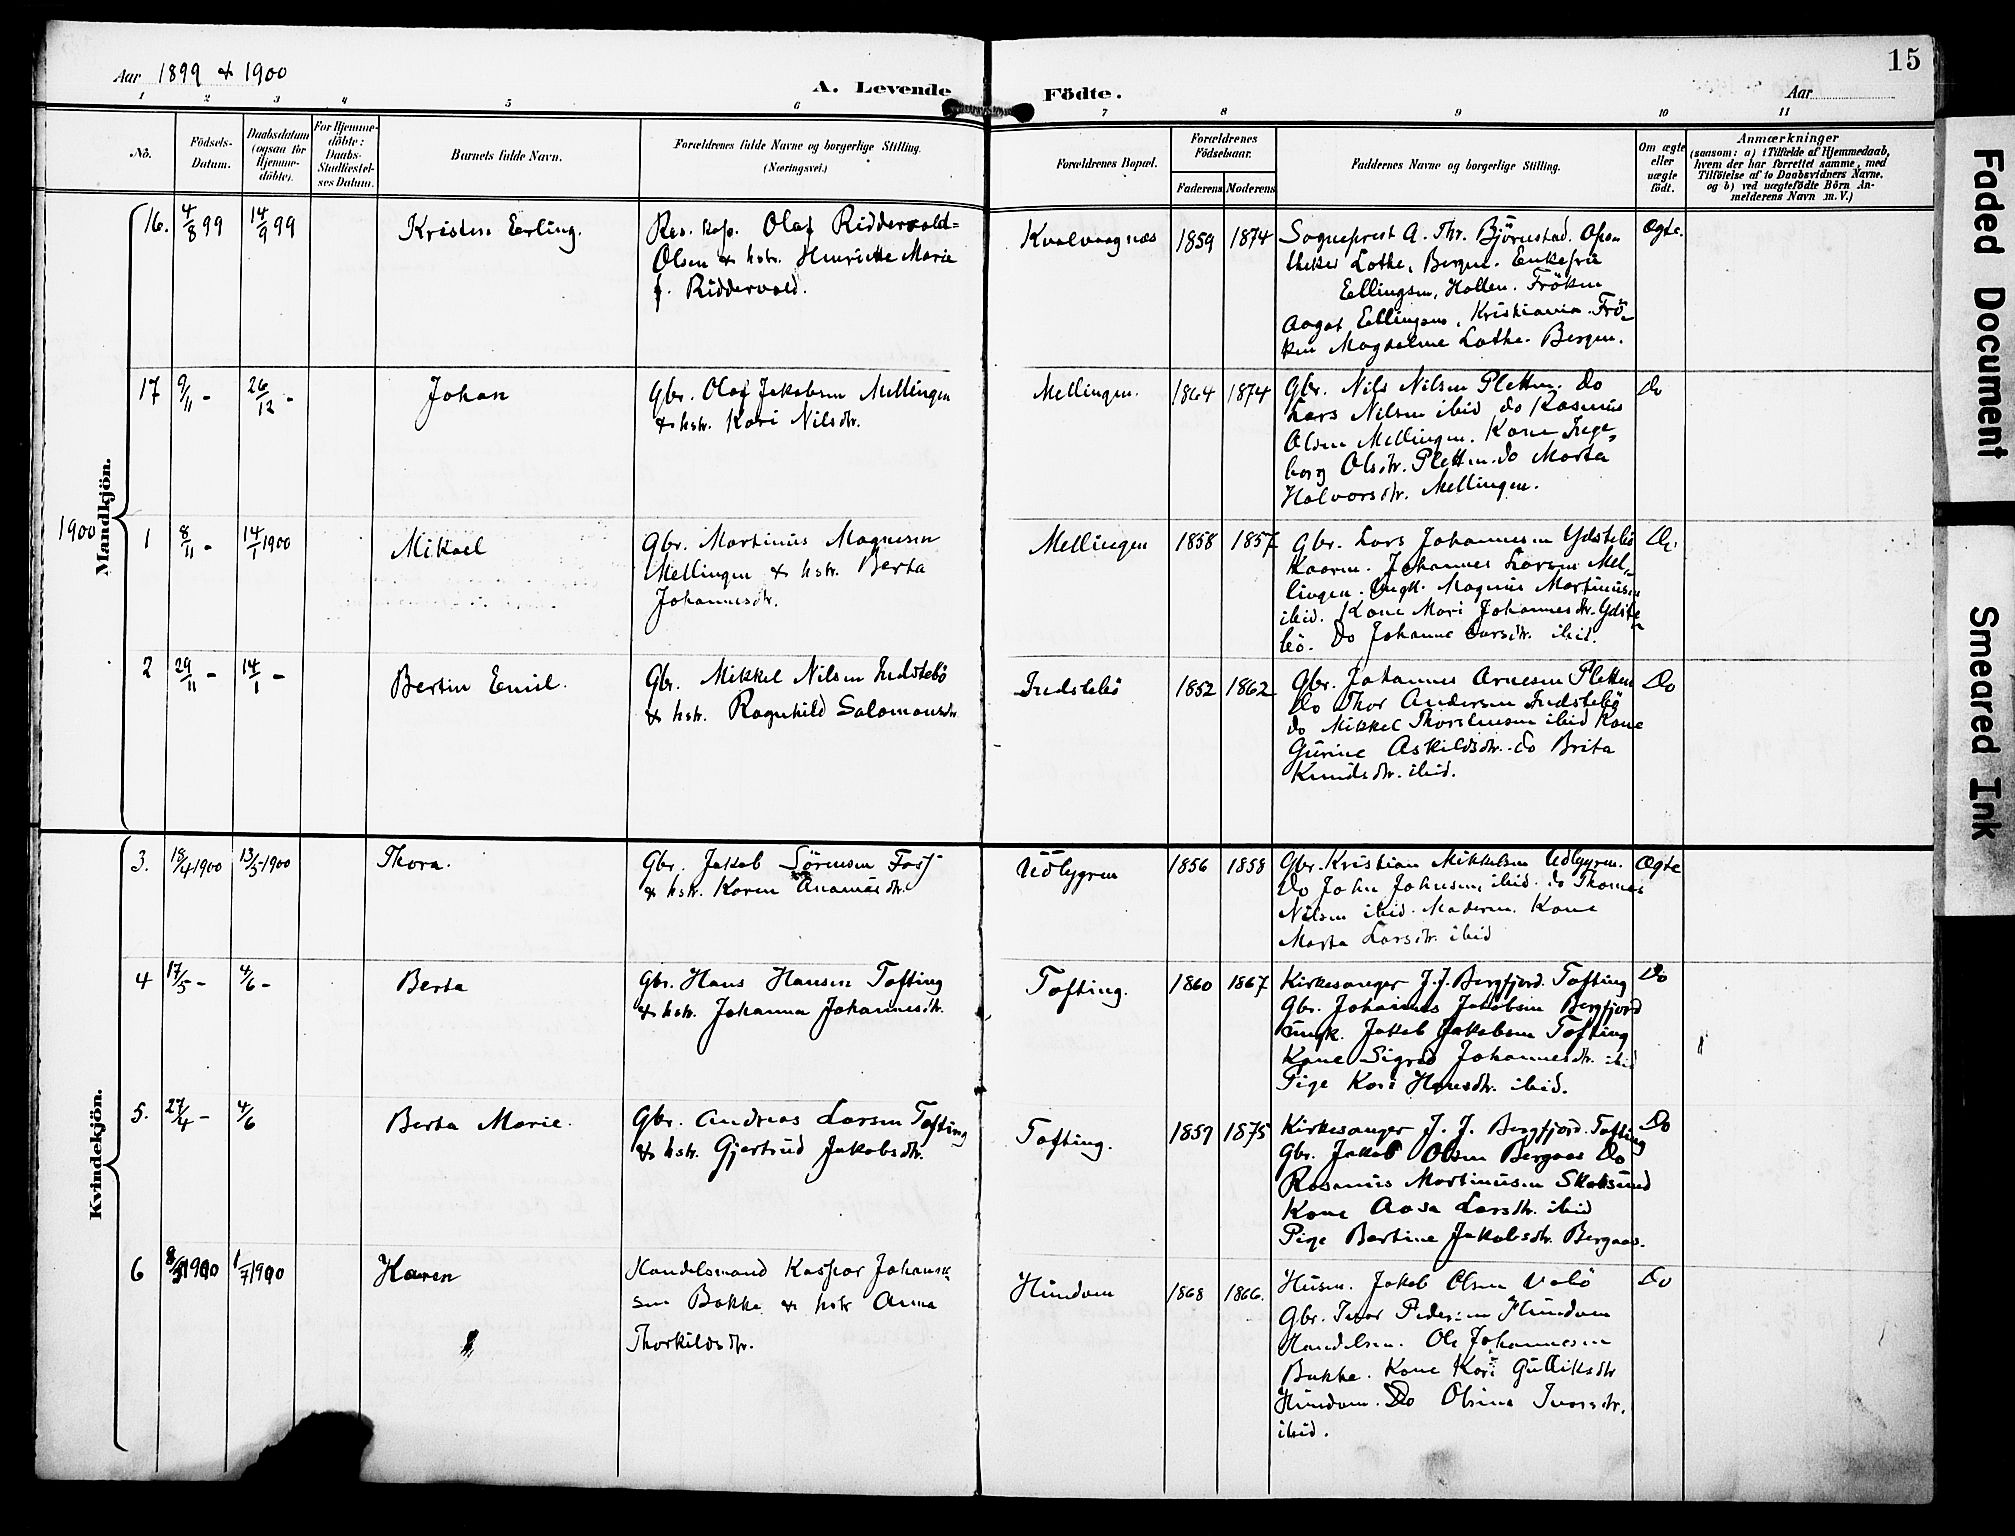 15
Aar 1899 & 1900
A. Levende Födte.
Aar
1 2 3 4 5 6 7 8 9 10 11
No.
Födsels-
Datum.
Daabsdatum
(ogsaa for
Hjemme-
döbte).
For Hjemme-
döbte:
Daabs-
Stadfæstel-
ses Datum.
Barnets fulde Navn.
Forældrenes fulde Navne og borgerlige Stilling.
(Næringsvei.)
Forældrenes Bopæl.
Forældrenes
Födselsaar.
Faderens Moderens
Faddernes Navne og borgerlige Stilling.
Om ægte
eller
uægte
födt.
Anmærkninger
(saasom: a) i Tilfælde af Hjemmedaab,
hvem der har forrettet samme, med
Tilföielse af to Daabsvidners Navne.
og b) ved uægtefödte Börn An-
melderens Navn m. V.)
Mandkjön.
16. 4/8 99 14/9 99
Kristen Erling.
Res. kap. Olaf Riddervold-
Olsen & hstr. Henriette Marie
f. Riddervold.
Kvalvaagnæs 1859 1874
Sogneprest A. Thr. Björnstad. Apo-
theker Lothe, Bergen. Enkefru
Ellingsen, Holten. Fröken
Aagot Ellingsen, Kristiania. Frö-
ken Magdalene Lothe. Bergen.
Ægte.
17 9/11 - 26/12 -
Johan
Gbr. Olaf Jakobsen Mellingen
& hstr. Kari Nilsdtr.
Mellingen. 1864 1874
Gbr. Nils Nilsen Pletten. Do
Lars Nilsen ibid do Rasmus
Olsen Mellingen. Kone Inge-
borg Olsdtr. Pletten. do Marta
Halvorsdtr. Mellingen.
Do
1900
1 8/11 - 14/1 1900
Mikael
Gbr. Martinus Magnesen
Mellingen & hstr. Berta
Johannesdtr.
Mellingen 1858 1857
Gbr. Lars Johannesen Ydstebö
Kaarm. Johannes Larsen Mel-
lingen. Ungk. Magnus Martinusen
ibid. Kone Mari Johannesdtr. Ydste-
bö. Do Johanne Larsdtr. ibid.
2 29/11 - 14/1 -
Bertin Emil.
Gbr. Mikkel Nilsen Indstebö
& hstr. Ragnhild Salomonsdtr
Indstebö 1852 1862
Gbr. Johannes Arnesen Pletten
Do Thor Andersen Indstebö
do Mikkel Thorstensen ibid Kone
Gurine Askildsdtr. do Brita
Knudsdtr. ibid.
Do
Kvindekjön.
3. 18/4 1900 13/5 1900
Thora.
Gbr. Jakob Sörensen Fosj
& hstr. Karen Ananiasdtr.
Udbygren 1856 1858
Gbr. Kristian Mikkelsen Udbygren.
Do John Johnsen, ibid. do Thomas
Nilsen ibid. Moderen. Kone
Marta Larsdtr. ibid
Ægte
4 17/5 - 4/6 -
Berta
Gbr. Hans Hansen Tofting
& hstr. Johanna Johannesdtr.
Tofting. 1860 1867
Kirkesanger J. J. Bergfjord. Tofting
Gbr. Johannes Jakobsen Bergfjord
Ungk. Jakob Jakobsen Tofting
Kone Sigrid Johannesdtr. ibid
Pige Kari Hansdtr. ibid.
Do
5. 27/4 - 4/6
Berta Marie.
Gbr. Andreas Larsen Tofting
& hstr. Gjertrud Jakobsdtr.
Tofting. 1859 1875
Kirkesanger J. J. Bergfjord. Tofting
Gbr. Jakob Olsen Bergaas Do
Rasmus Martinusen Skabsund
Kone Aasa Larsdtr. ibid
Pige Bertine Jakobsdtr. Bergaas.
Do
6 1900 1/7 1900
Karen
Handelsmand Kaspar Johanne-
sen Bakke & hstr Anna
Thorkildsdtr.
Hundom 1868 1866.
Husm. Jakob Olsen Valö
Gbr. Ivar Pedersen Hundom
Handelsm. Ole Johannesen
Bakke. Kone Kari Gulliksdtr
Hundom. Do Olsina Ivarsdtr.
ibid.
Do
Faded Document
Smeared Ink